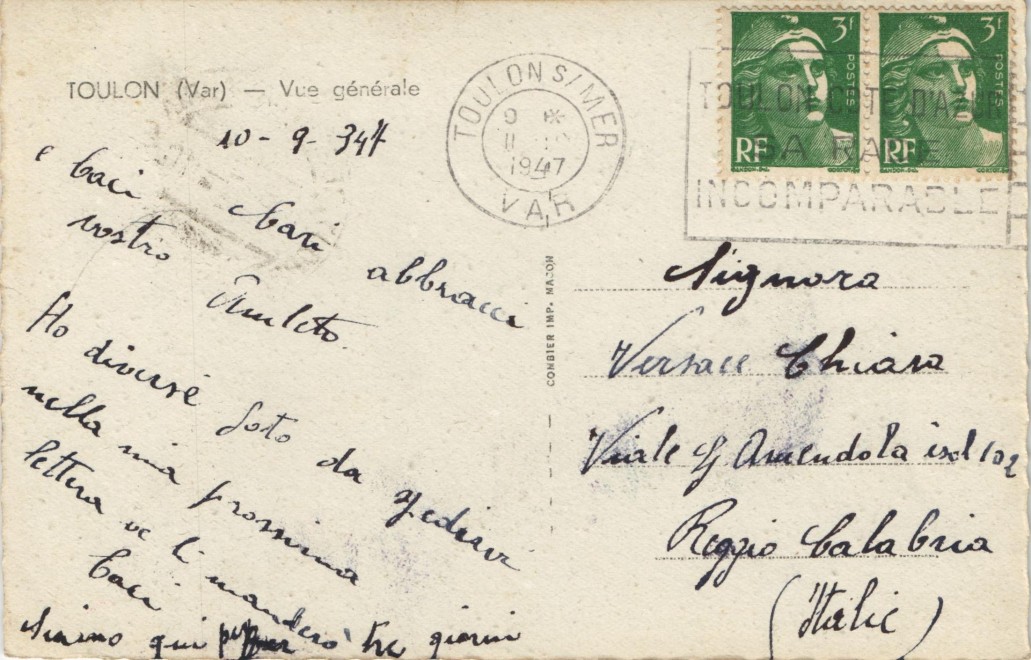 TOULON (Var) — Vue générale
10-9-347
Caci Cari abbracci
vostro Amleto
Ho diverse foto da spedirvi
nella mia prossima
lettera ve li manderò
Caci
Siamo qui per tre giorni
CONBIER IMP. MACON
TOULON S/MER
9 *
1947
VAR
3f
POSTES
RF
3f
POSTES
RF
TOULON COTE D'AZUR
SA RADE
INCOMPARABLE
Signora
Versace Chiara
Viale G Amendola isol 102
Reggio Calabria
(Italie)